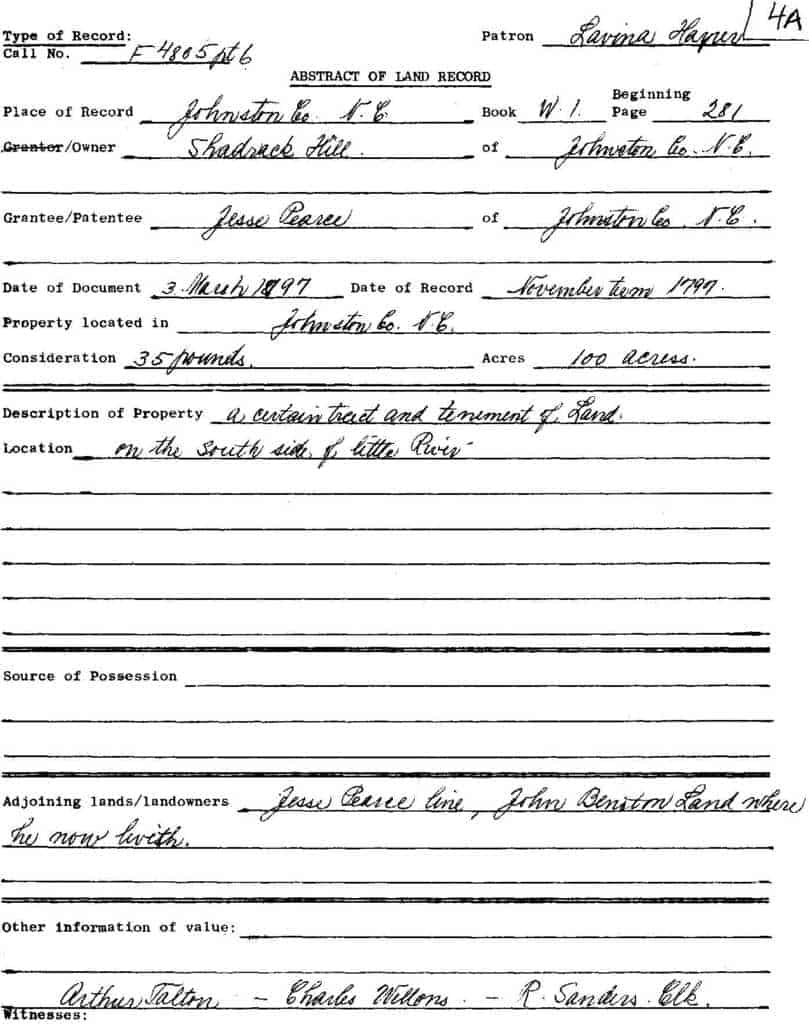 4A
Type of Record: Patron Lavina
Call No. F 4805 pt 6
ABSTRACT OF LAND RECORD
Place of Record Johnston Co. N.C. Book W. 1. Beginning Page 281
Grantor/Owner Shadrack Hill. of Johnston Co. N.C.
Grantee/Patentee Jesse Pearce of Johnston Co. N.C.
Date of Document 3 March 1797 Date of Record November term 1797.
Property located in Johnston Co. N.C.
Consideration 35 pounds. Acres 100 acress.
Description of Property a certain tract and tenement of Land.
Location on the south side of little River
Source of Possession
Adjoining lands/landowners Jesse Pearce line, John Benston Land where
he now liveth.
Other information of value:
Arthur Talton – Charles Willons. – R. Sanders. Clk.
Witnesses: